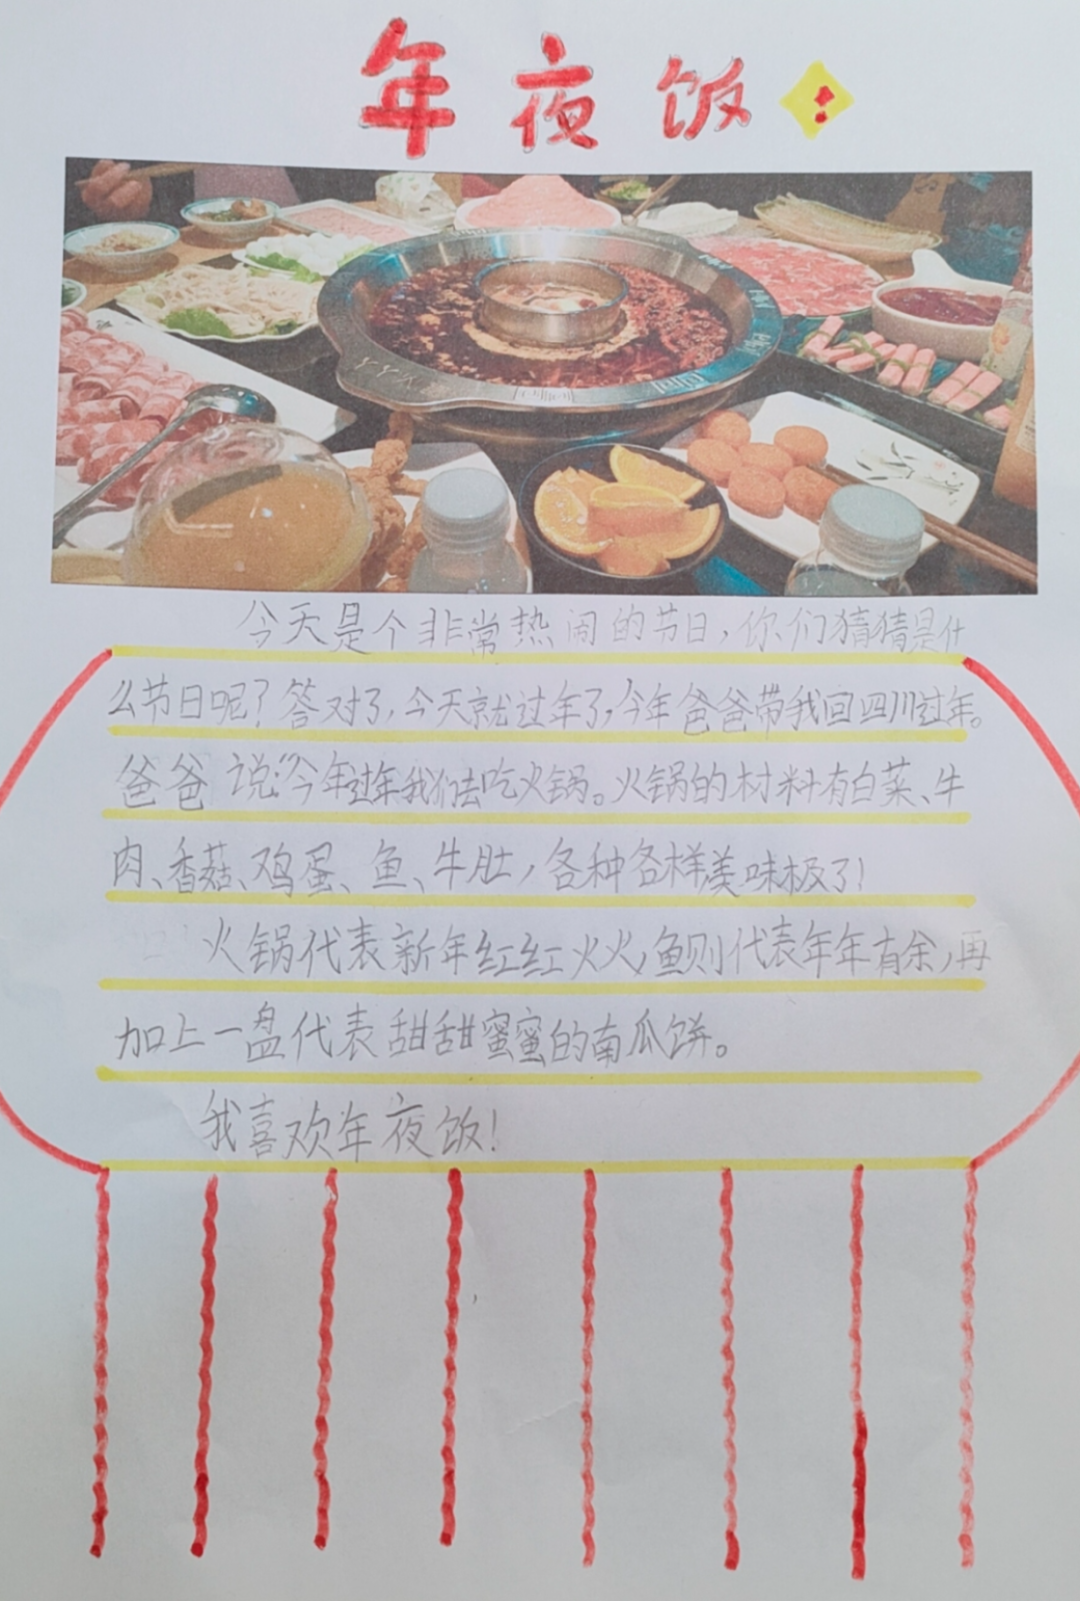 年夜饭:
今天是个非常热闹的节日，你们猜猜是什
么节日呢？答对了，今天就过年了，今年爸爸带我回四川过年。
爸爸说:“今年过年我们去吃火锅。火锅的材料有白菜、牛
肉、香菇、鸡蛋、鱼、牛肚，各种各样美味极了！
火锅代表新年红红火火，鱼则代表年年有余，再
加上一盘代表甜甜蜜蜜的南瓜饼。
我喜欢年夜饭！